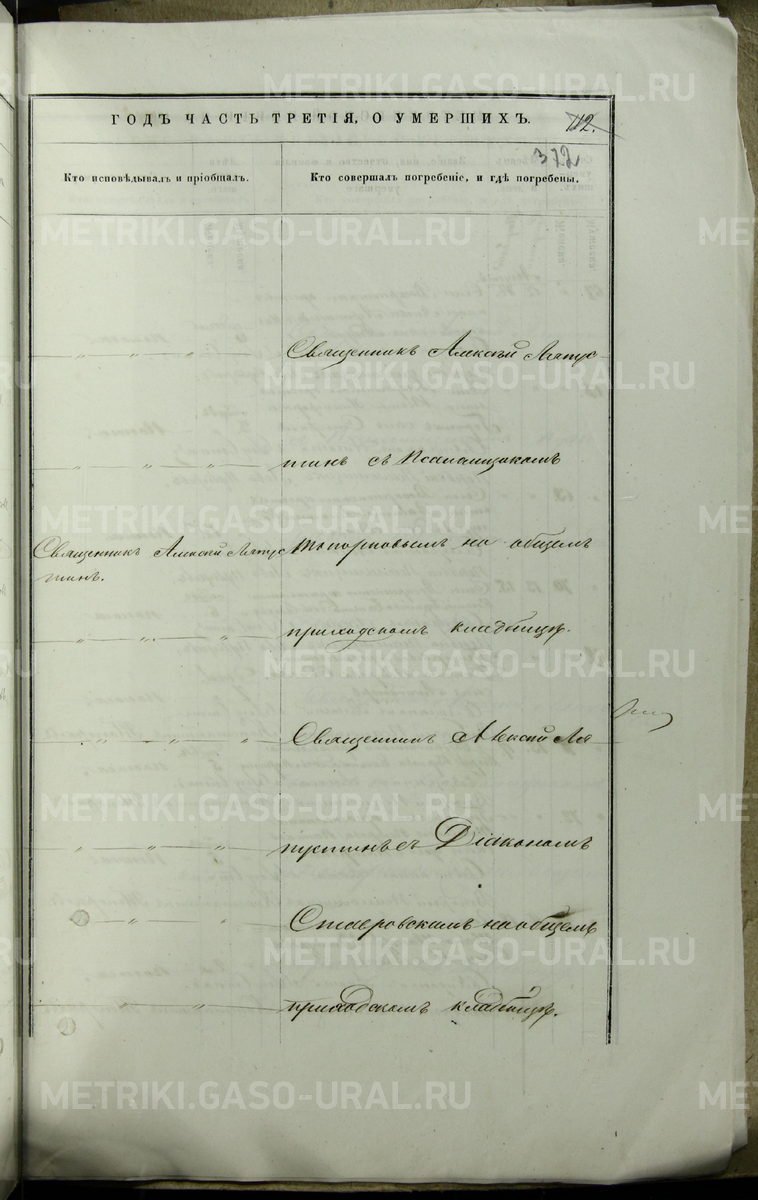 ГОДЪ ЧАСТЬ ТРЕТІЯ, О УМЕРШИХЪ.
112.
372
Кто исповѣдывалъ и пріобщалъ.
Кто совершалъ погребеніе, и гдѣ погребены.
Священникъ Алексѣй Ляпус-
тинъ съ Псаломщикомъ
Священникъ Алексѣй Ляпус
тинъ.
Топорковымъ на общемъ
приходскомъ кладбищѣ.
Священникъ Алексѣй Ля-
пустинъ съ Діакономъ
Ставровскимъ на общемъ
приходскомъ кладбищѣ.
METRIKI.GASO-URAL.RU